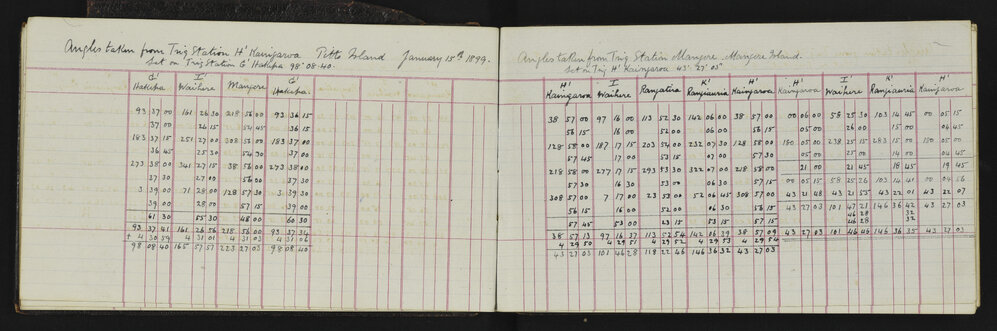 Angles taken from Trig Station H' Kaingaroa Pitt Island January 15th 1899.
Set on Trig Station G' Hakepa 98° 08' 40"
G' I' G'
Hakepa Waihere Mangere Hakepa
93 37 00 161 26 30 218 56 00 93 36 15
37 00 26 15 54 45 36 15
183 37 15 251 27 00 308 56 00 183 37 00
36 45 25 30 54 30 37 00
273 38 00 341 27 15 38 56 00 273 38 00
37 30 27 00 56 00 37 30
3 39 00 71 28 00 128 57 30 3 39 30
39 00 28 00 57 15 39 00
61 30 55 30 48 00 60 30
93 37 41 161 26 56 218 56 00 93 37 34
+ 4 30 59 4 31 01 4 31 03 4 31 06
98 08 40 165 57 57 223 27 03 98 08 40
Angles taken from Trig Station Mangere Mangere Island.
Set on Trig H' Kaingaroa 43° 27' 03"
H' I' K' H' H' I' K' H'
Kaingaroa Waihere Rangatira Rangiauria Kaingaroa Kaingaroa Waihere Rangiauria Kaingaroa
38 57 00 97 16 00 113 52 30 142 06 00 38 57 00 00 06 00 58 25 30 103 14 45 00 05 15
56 15 16 00 52 00 06 00 56 15 05 00 26 00 15 00 04 45
128 58 00 187 17 15 203 54 00 232 07 30 128 58 00 180 05 00 238 25 15 283 15 00 180 05 00
57 45 17 00 53 15 07 00 57 30 05 00 25 00 14 00 04 45
218 58 00 277 17 15 293 53 30 322 07 00 218 58 00 21 00 21 45 18 45 19 45
57 30 16 30 53 00 06 30 57 15 00 05 15 58 25 26 103 14 41 00 04 56
308 57 00 7 17 00 23 53 00 52 06 45 308 57 00 43 21 48 43 21 53 43 22 01 43 22 07
56 15 16 00 52 00 06 30 56 15 43 27 03 101 47 21 146 36 42 43 27 03
46 28 32
57 45 53 00 23 15 53 15 57 15 46 28 32
38 57 13 97 16 37 113 52 54 142 06 39 38 57 09 43 27 03 101 46 46 146 36 35 43 27 03
4 29 50 4 29 51 4 29 52 4 29 53 4 29 54
43 27 03 101 46 28 118 22 46 146 36 32 43 27 03